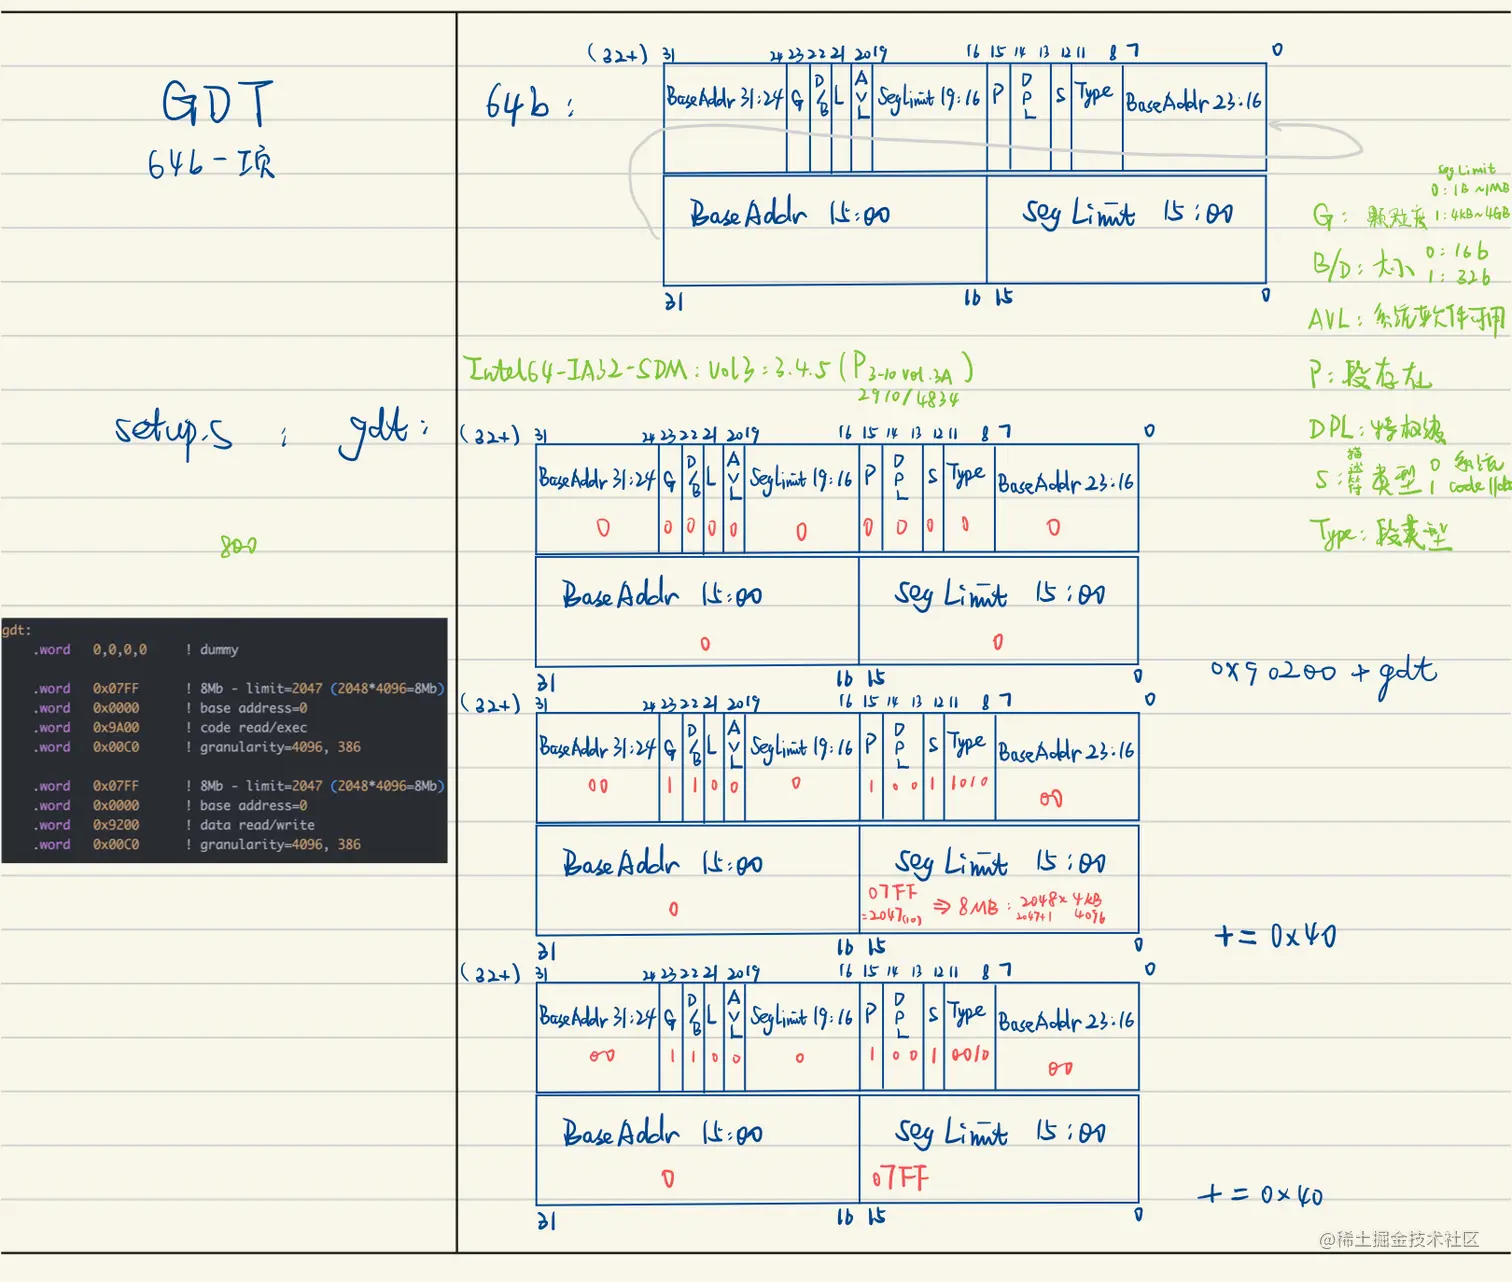 GDT
64b一项
64b:
(32+) 31 24 23 22 21 20 19 16 15 14 13 12 11 8 7 0
BaseAddr 31:24 G D/B L AVL SegLimit 19:16 P DPL S Type BaseAddr 23:16
BaseAddr 15:00 Seg Limit 15:00
31 16 15 0
seg Limit
0:1B~1MB
G: 颗粒度 1:4KB~4GB
B/D:大小 0:16b
1:32b
AVL:系统软件可用
P:段存在
DPL:特权级
S:描述符类型 0 系统
1 code
Type:段类型
Intel64-IA32-SDM:Vol3:3.4.5(P3-10 Vol.3A)
2910/4834
setup.s : gdt:
800
(32+) 31 24 23 22 21 20 19 16 15 14 13 12 11 8 7 0
BaseAddr 31:24 G D/B L AVL SegLimit 19:16 P DPL S Type BaseAddr 23:16
0 0 0 0 0 0 0 0 0 0 0
BaseAddr 15:00 Seg Limit 15:00
0 0
31 16 15 0
0x90200+gdt
gdt:
.word 0,0,0,0 ! dummy
.word 0x07FF ! 8Mb - limit=2047 (2048*4096=8Mb)
.word 0x0000 ! base address=0
.word 0x9A00 ! code read/exec
.word 0x00C0 ! granularity=4096, 386
.word 0x07FF ! 8Mb - limit=2047 (2048*4096=8Mb)
.word 0x0000 ! base address=0
.word 0x9200 ! data read/write
.word 0x00C0 ! granularity=4096, 386
(32+) 31 24 23 22 21 20 19 16 15 14 13 12 11 8 7 0
BaseAddr 31:24 G D/B L AVL SegLimit 19:16 P DPL S Type BaseAddr 23:16
00 1 1 0 0 0 1 0 0 1 1010 00
BaseAddr 15:00 Seg Limit 15:00
0 07FF
=2047(10) ⇒ 8MB: 2048×4KB
2047+1 4096
31 16 15 0
+=0x40
(32+) 31 24 23 22 21 20 19 16 15 14 13 12 11 8 7 0
BaseAddr 31:24 G D/B L AVL SegLimit 19:16 P DPL S Type BaseAddr 23:16
00 1 1 0 0 0 1 0 0 1 0010 00
BaseAddr 15:00 Seg Limit 15:00
0 07FF
31 16 15 0
+=0x40
@稀土掘金技术社区